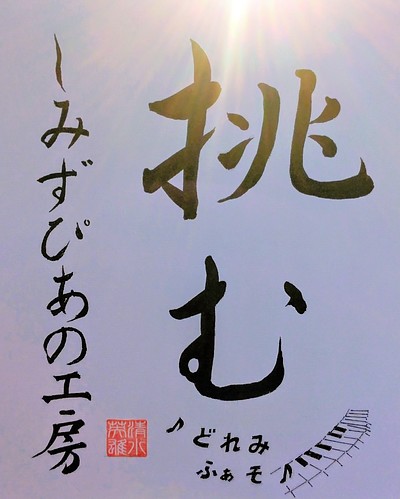 挑む
♪どれみ
ふぁそ♪
しみずぴあの工房
清水